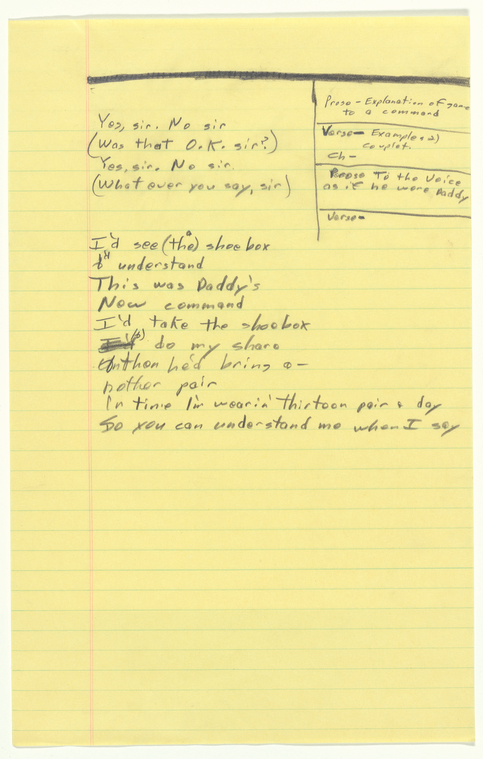 Yes, sir. No sir
(Was that O.K. sir?)
Yes, sir. No sir.
(What ever you say, sir)
I'd see (the) a shoe box
I'd understand
This was Daddy's
New command
I'd take the shoebox
I'd do my share
then he'd bring a-
nother pair
In time I'm wearin' thirteen pair a day
So you can understand me when I say
Prose - Explanation of game
to a command
Verse - Examples 2)
couplet.
Ch-
Prose To the Voice
as if he were Daddy
Verse-